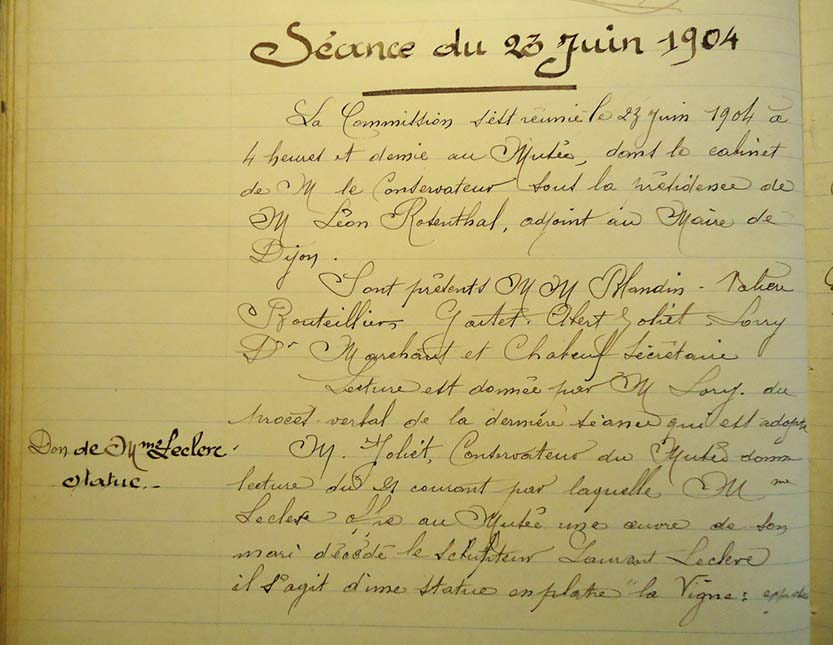 Séance du 23 Juin 1904
La Commission s'est réunie le 23 Juin 1904 à
4 heures et demie au Musée, dans le cabinet
de M le Conservateur sous la présidence de
M Léon Rosenthal, adjoint au Maire de
Dijon.
Sont présents M M Blandin -
Bouteillier Gautet. Albert Joliet, Lorry
Dr Marchant et Chabeuf Sécrétaire
Lecture est donnée par M Lory. du
procès-verbal de la dernière séance qui est adopté
Don de Mme Leclerc
statue.-
M. Joliet, Conservateur du Musée donne
lecture du courant par laquelle Mme
Leclerc offre au Musée une œuvre de son
mari décédé le sculpteur Laurent Leclerc
il s'agit d'une statue en platre "la Vigne: